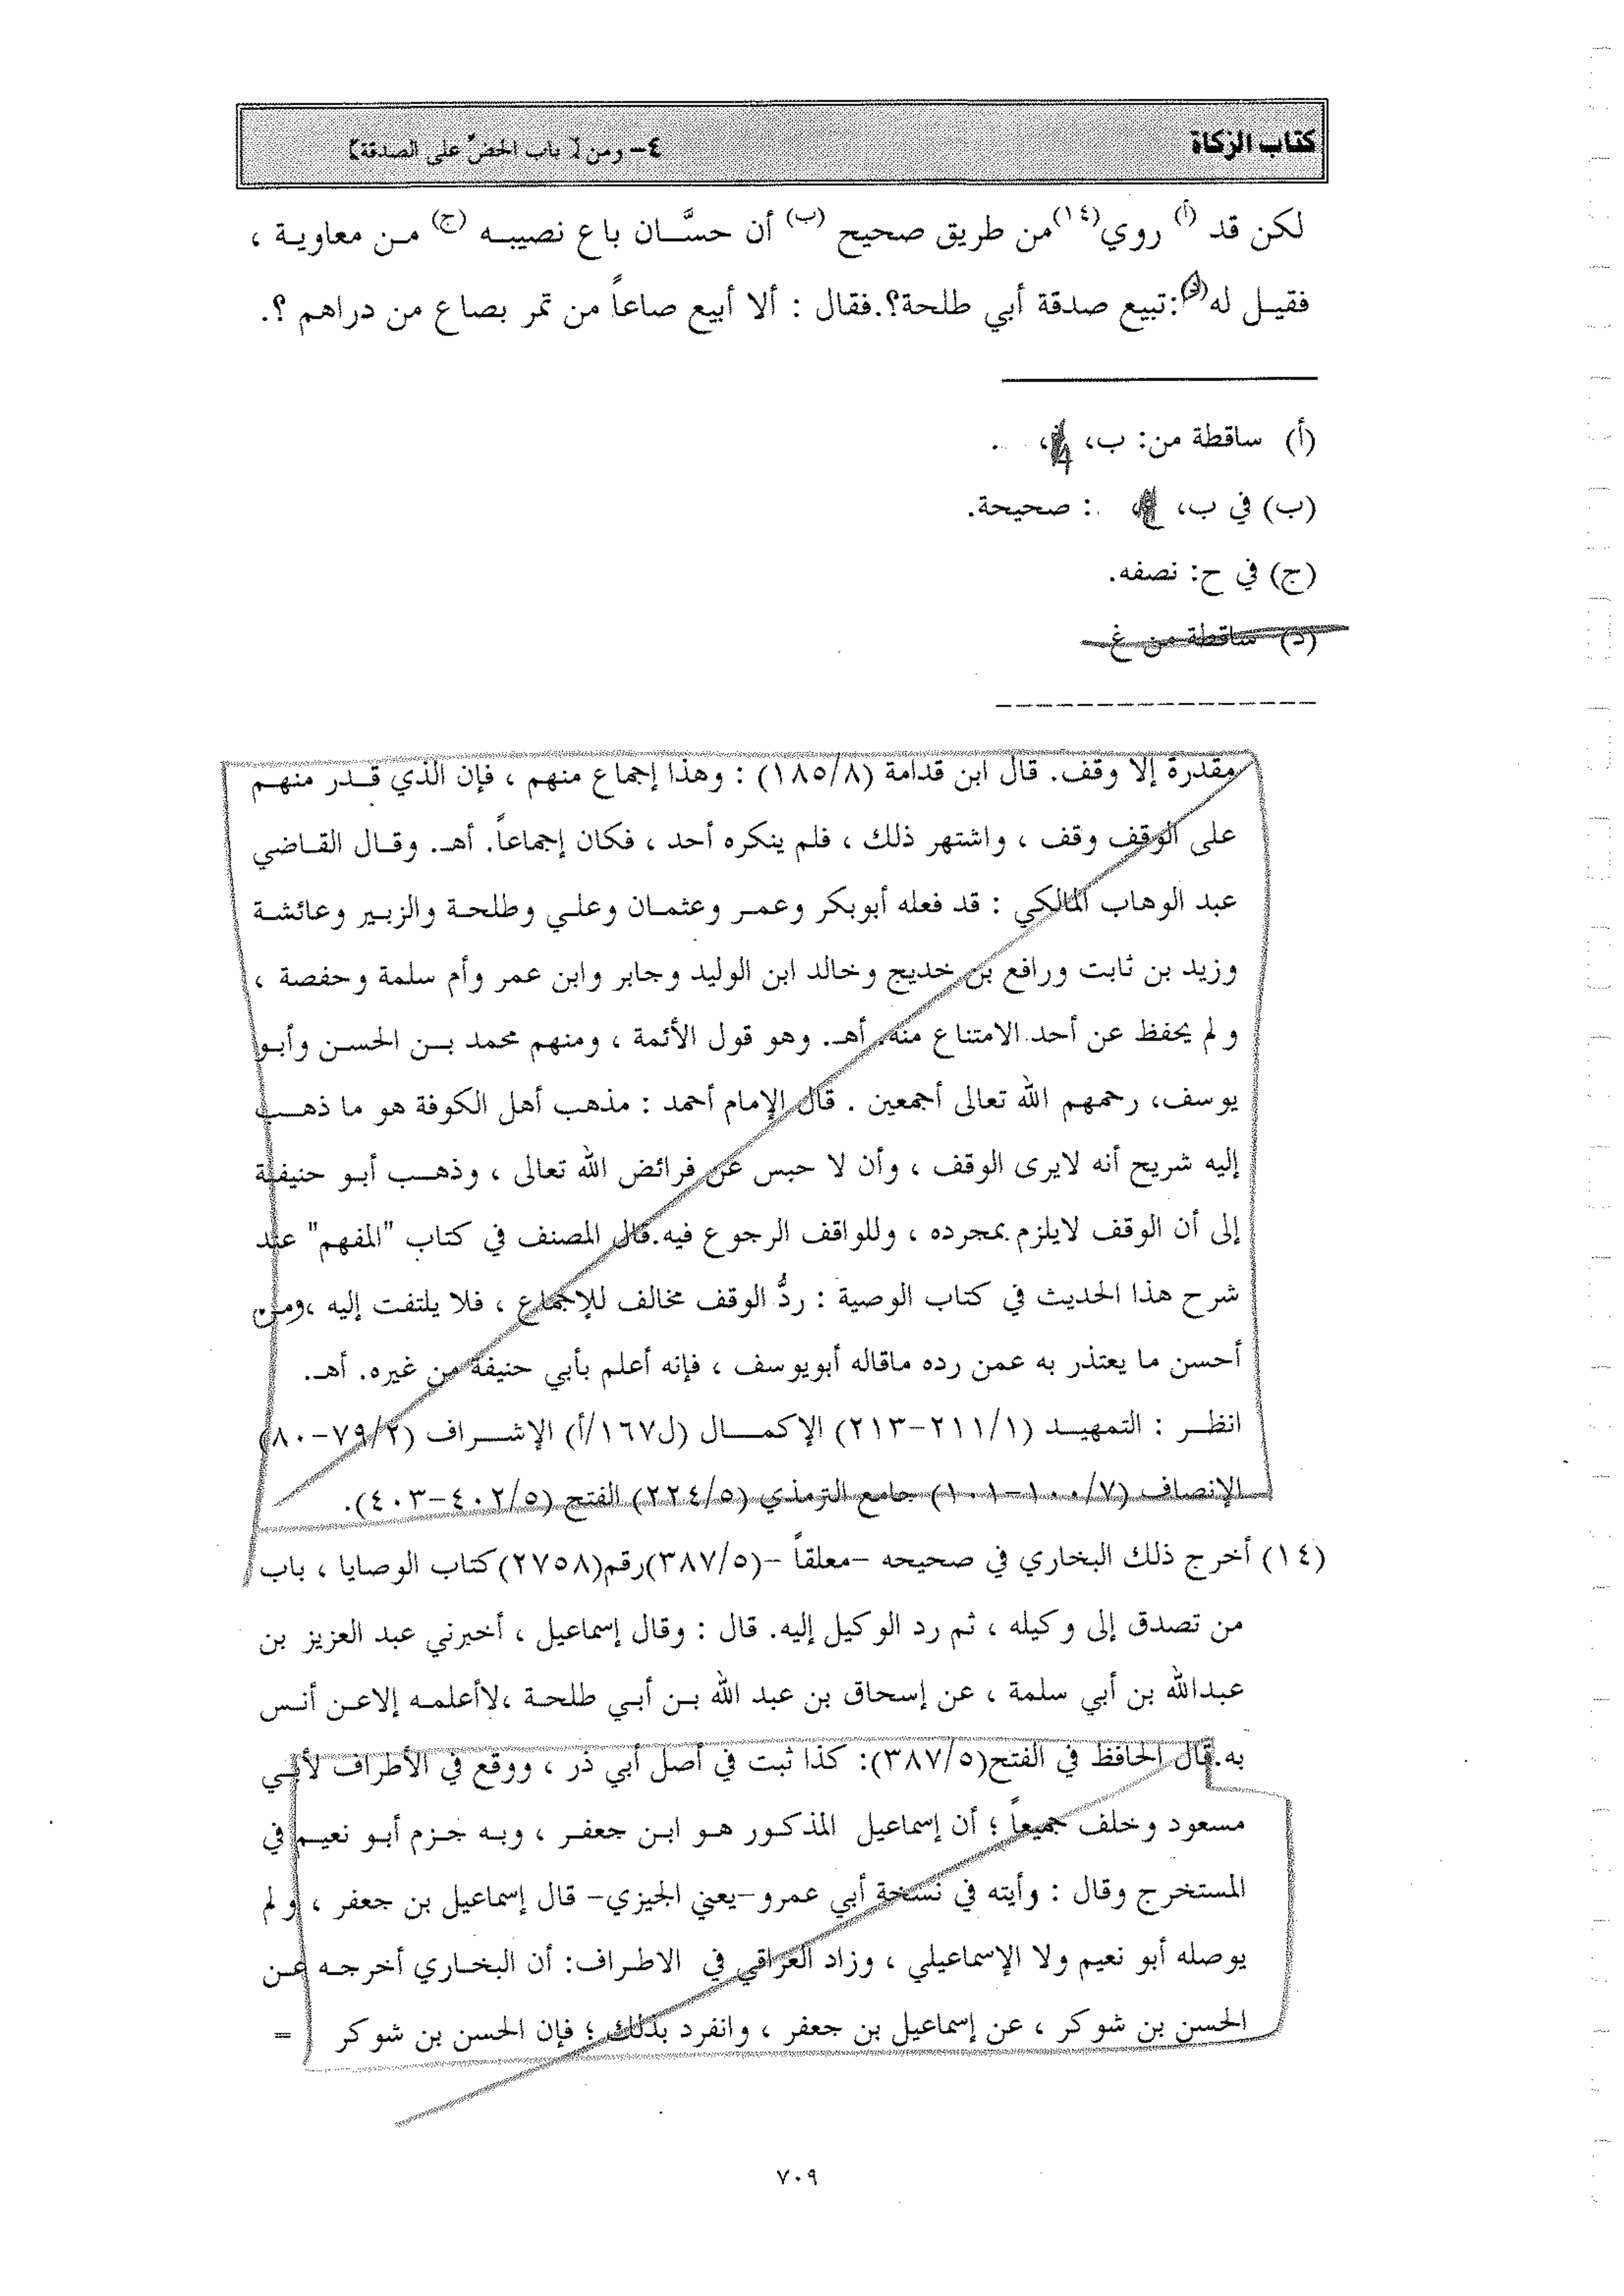 كتاب الزكاة
٤- ومن [ باب الحضّ على الصدقة]
لكن قد (أ) روي(١٤)من طريق صحيح (ب) أن حسَّان باع نصيبه (ج) من معاوية ،
فقيل له(د):تبيع صدقة أبي طلحة؟.فقال : ألا أبيع صاعاً من تمر بصاع من دراهم ؟.
(أ) ساقطة من: ب،
(ب) في ب، : صحيحة.
(ج) في ح: نصفه.
(د) ساقطة من غ
مقدرة إلا وقف. قال ابن قدامة (١٨٥/٨) : وهذا إجماع منهم ، فإن الذي قدر منهم
على الوقف وقف ، واشتهر ذلك ، فلم ينكره أحد ، فكان إجماعاً. أهـ. وقال القاضي
عبد الوهاب المالكي : قد فعله أبوبكر وعمر وعثمان وعلي وطلحة والزبير وعائشة
وزيد بن ثابت ورافع بن خديج وخالد ابن الوليد وجابر وابن عمر وأم سلمة وحفصة ،
ولم يحفظ عن أحد الامتناع منه. أهـ. وهو قول الأئمة ، ومنهم محمد بن الحسن وأبو
يوسف، رحمهم الله تعالى أجمعين . قال الإمام أحمد : مذهب أهل الكوفة هو ما ذهب
إليه شريح أنه لايرى الوقف ، وأن لا حبس عن فرائض الله تعالى ، وذهب أبو حنيفة
إلى أن الوقف لايلزم بمجرده ، وللواقف الرجوع فيه.قال المصنف في كتاب "المفهم" عند
شرح هذا الحديث في كتاب الوصية : ردُّ الوقف مخالف للإجماع ، فلا يلتفت إليه ،ومن
أحسن ما يعتذر به عمن رده ماقاله أبويوسف ، فإنه أعلم بأبي حنيفة من غيره. أهـ.
انظر : التمهيد (٢١١/١-٢١٣) الإكمال (ل١٦٧/أ) الإشراف (٧٩/٢-٨٠)
الإنصاف (١٠٠/٧-١٠١) جامع الترمذي (٢٢٤/٥) الفتح (٤٠٢/٥-٤٠٣).
(١٤) أخرج ذلك البخاري في صحيحه -معلقاً -(٣٨٧/٥)رقم(٢٧٥٨)كتاب الوصايا ، باب
من تصدق إلى وكيله ، ثم رد الوكيل إليه. قال : وقال إسماعيل ، أخبرني عبد العزيز بن
عبدالله بن أبي سلمة ، عن إسحاق بن عبد الله بن أبي طلحة ،لاأعلمه إلاعن أنس
به.قال الحافظ في الفتح(٣٨٧/٥): كذا ثبت في أصل أبي ذر ، ووقع في الأطراف لأبي
مسعود وخلف جميعاً ؛ أن إسماعيل المذكور هو ابن جعفر ، وبه جزم أبو نعيم في
المستخرج وقال : وأيته في نسخة أبي عمرو-يعني الجيزي- قال إسماعيل بن جعفر ، ولم
يوصله أبو نعيم ولا الإسماعيلي ، وزاد العراقي في الاطراف: أن البخاري أخرجه عن
الحسن بن شوكر ، عن إسماعيل بن جعفر ، وانفرد بذلك ؛ فإن الحسن بن شوكر =
٧٠٩